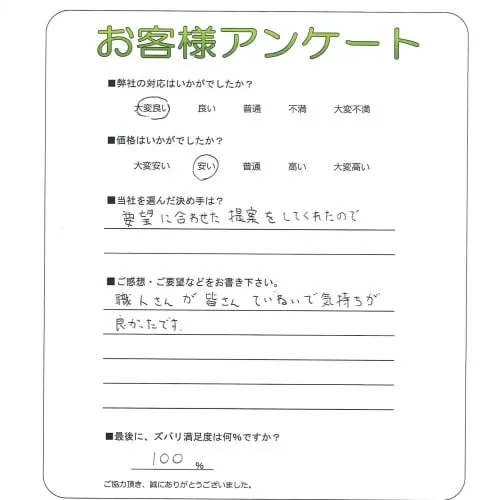 お客様アンケート
■弊社の対応はいかがでしたか？
大変良い 良い 普通 不満 大変不満
■価格はいかがでしたか？
大変安い 安い 普通 高い 大変高い
■当社を選んだ決め手は？
要望に合わせた提案をしてくれたので
■ご感想・ご要望などをお書き下さい。
職人さんが皆さんていねいで気持ちが
良かったです。
■最後に、ズバリ満足度は何%ですか？
100 %
ご協力頂き、誠にありがとうございました。